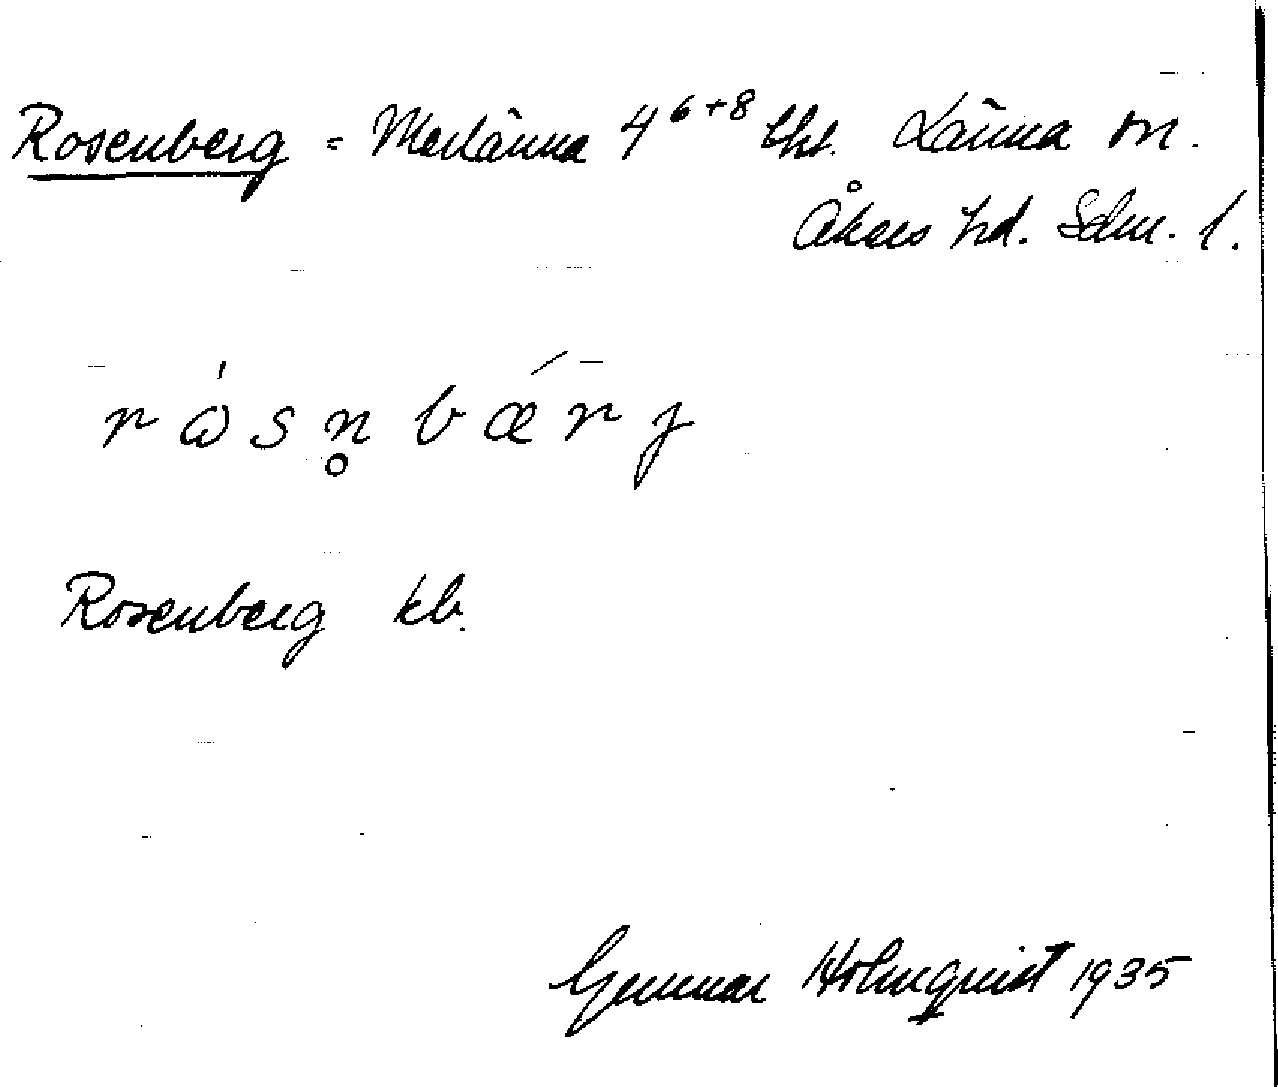 Rosenberg = Merlänna 4⁶⁺⁸ tht. Länna sn.
Åkers hd. Sdm. l.
rɷ́sn̥bǽrj
Rosenberg kb.
Gunnar Holmquist 1935